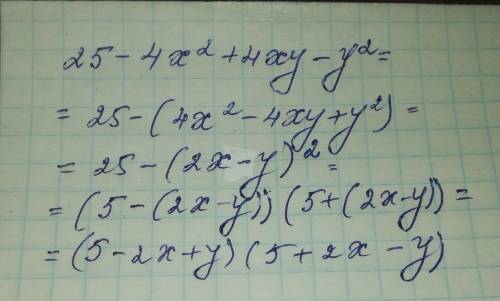 25 - 4x² + 4xy - y² =
= 25 - (4x² - 4xy + y²) =
= 25 - (2x - y)² =
= (5 - (2x - y)) (5 + (2x - y)) =
= (5 - 2x + y) (5 + 2x - y)